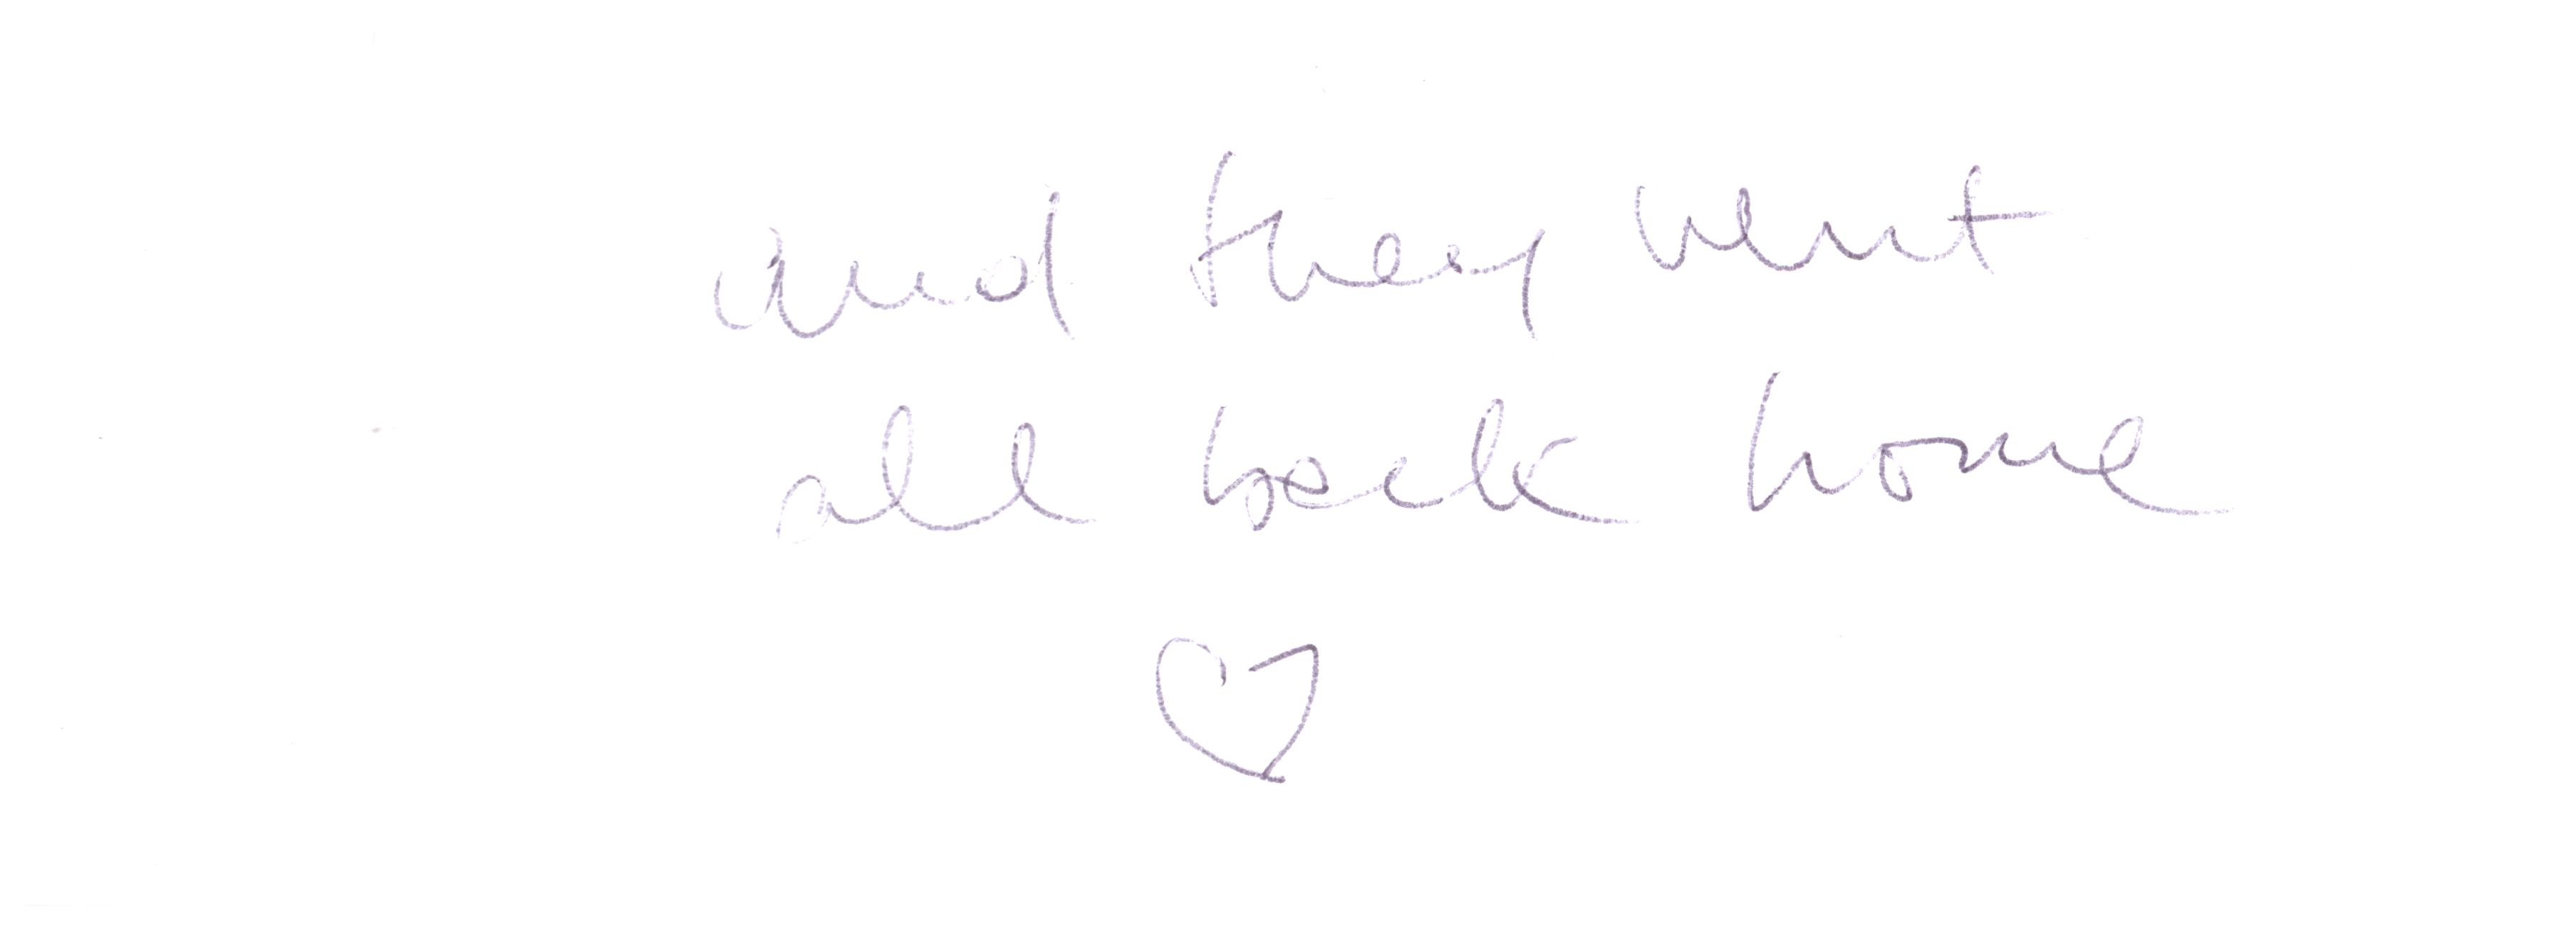 and they went
all back home
♡